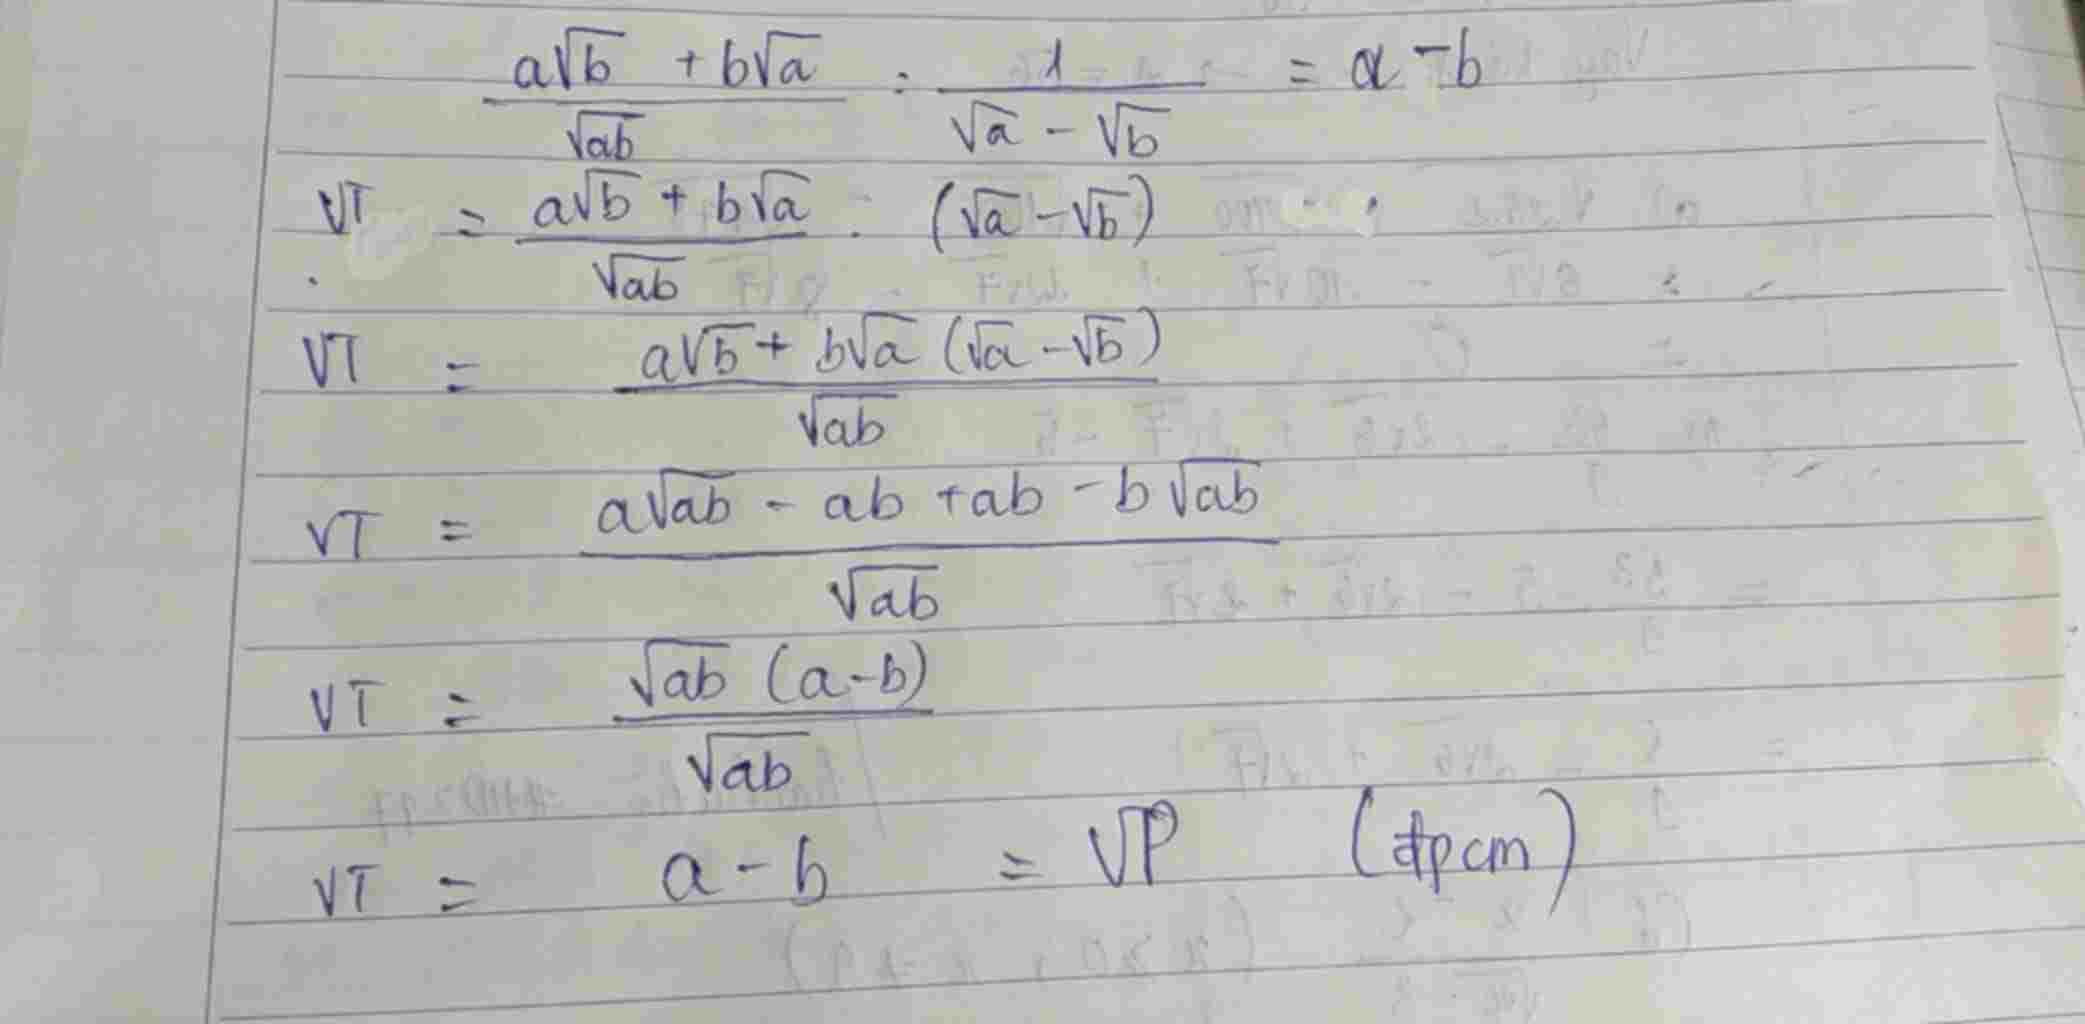 (a√b + b√a)/√ab : 1/(√a - √b) = a - b
VT = (a√b + b√a)/√ab . (√a - √b)
VT = a√b + b√a (√a - √b)/√ab
VT = (a√ab - ab + ab - b√ab)/√ab
VT = √ab (a-b)/√ab
VT = a - b = VP (đpcm)